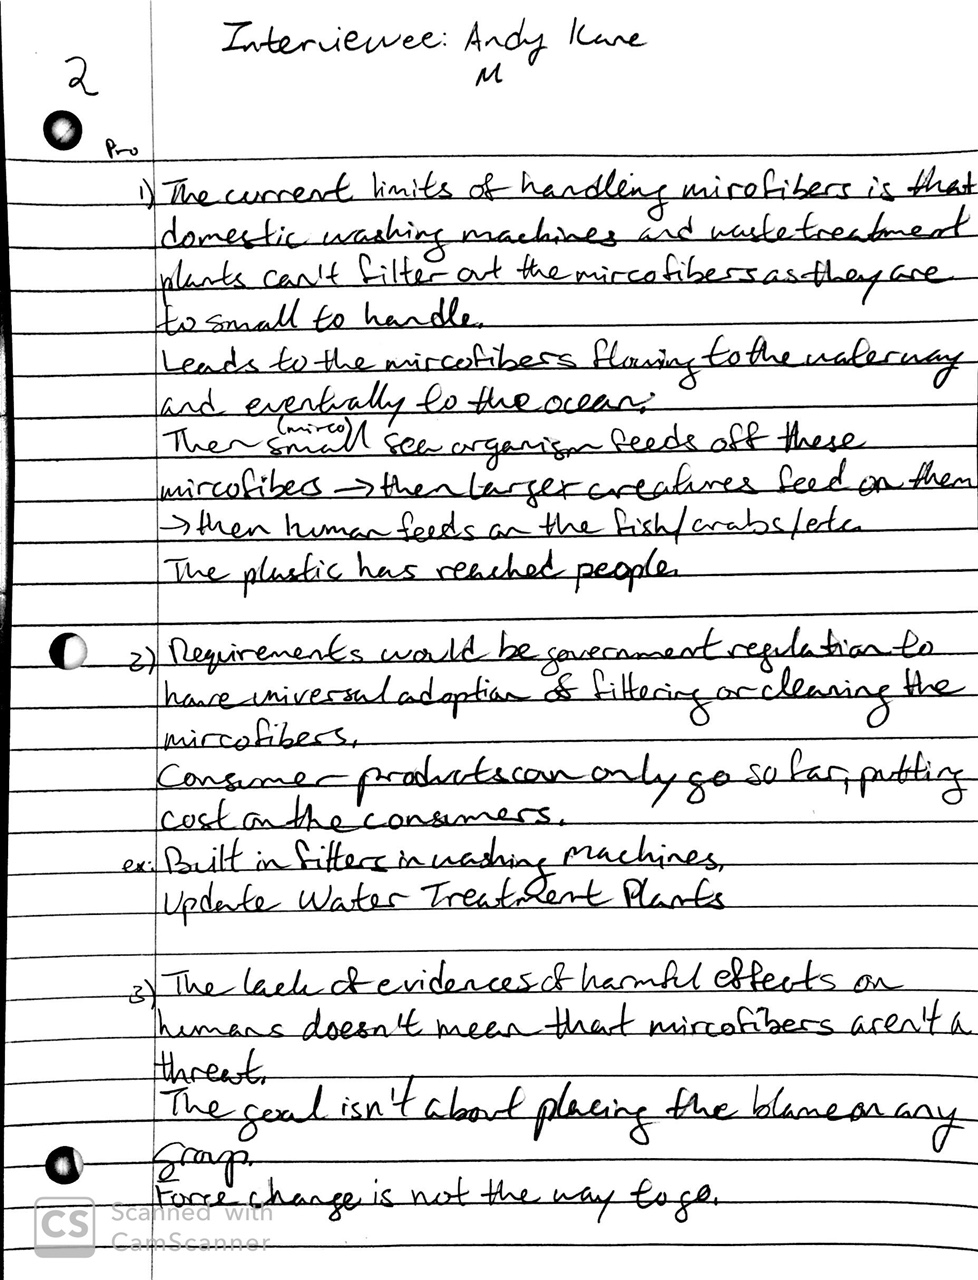 Interviewee: Andy Kane
M
2
Pro
1) The current limits of handling mirofibers is that
domestic washing machines and waste treatment
plants can't filter out the mircofibers as they are
to small to handle.
Leads to the mircofibers flowing to the waterway
and eventually to the ocean.
(mirco)
Then small sea organism feeds off these
mircofibers → then larger creatures feed on them
→ then human feeds on the fish/crabs/etc.
The plastic has reached people.
2) Requirements would be government regulation to
have universal adoption of filtering or cleaning the
mircofibers.
Consumer products can only go so far, putting
cost on the consumers.
ex: Built in filters in washing machines,
Update Water Treatment Plants
3) The lack of evidences of harmful effects on
humans doesn't mean that mircofibers aren't a
threat.
The goal isn't about placing the blame on any
group.
Force change is not the way to go.
CS Scanned with
CamScanner